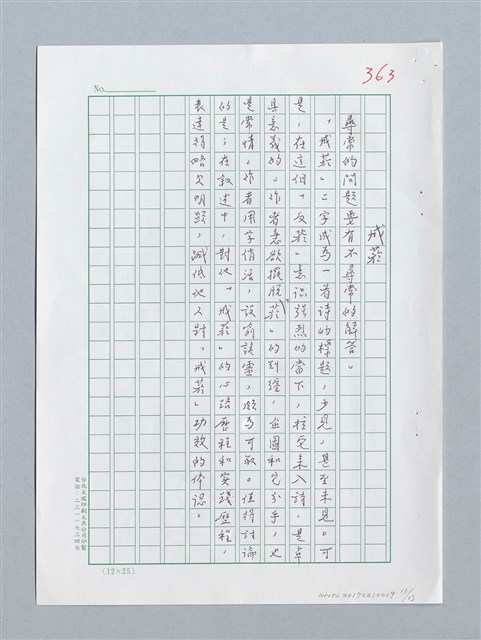 363
No.
戒菸
尋常的問題要有不尋常的解答。
「戒菸」二字成為一首詩的標題,少見,甚至未見。可
是,在這個「反菸」意識強烈的當下,拄它來入詩,是卓
具意義的。作者意欲擺脫「菸」的糾纏,企圖和它分手,也
是常情。作者用字俏活,設喻談靈,頗為可取。值得討論
的是:在敘述中,對他「戒菸」的心路歷程和實踐歷程,
表達得略欠明顯,減低他人對「戒菸」功效的体認。
(12×25)
NMTL20170210019 12/13